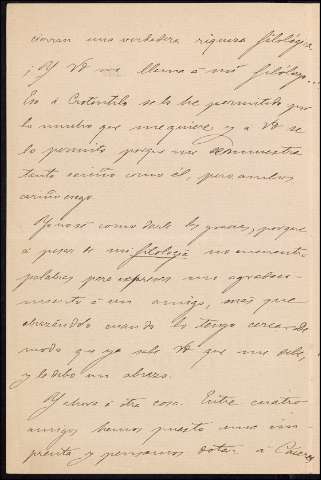 cierran una verdadera riqueza filológica
¡Y Vd me llama á mi filólogo...
Eso á Crotontilo se lo he permitido por
lo mucho que me quiere y a Vd se
lo permito porque me demuestra
tanto cariño como él, pero ambos
cariño ciego.
Yo no sé como darle las gracias, porque
á pesar de mi filología no encuentro
palabras para expresar mi agradeci-
miento á un amigo, mas que
abrazándolo cuando lo tengo cerca; de
modo que ya sabe Vd que me debe,
y le debo un abrazo.
Y ahora á otra cosa. Entre cuatro
amigos hemos puesto una im-
prenta y pensamos dotar á Cáceres